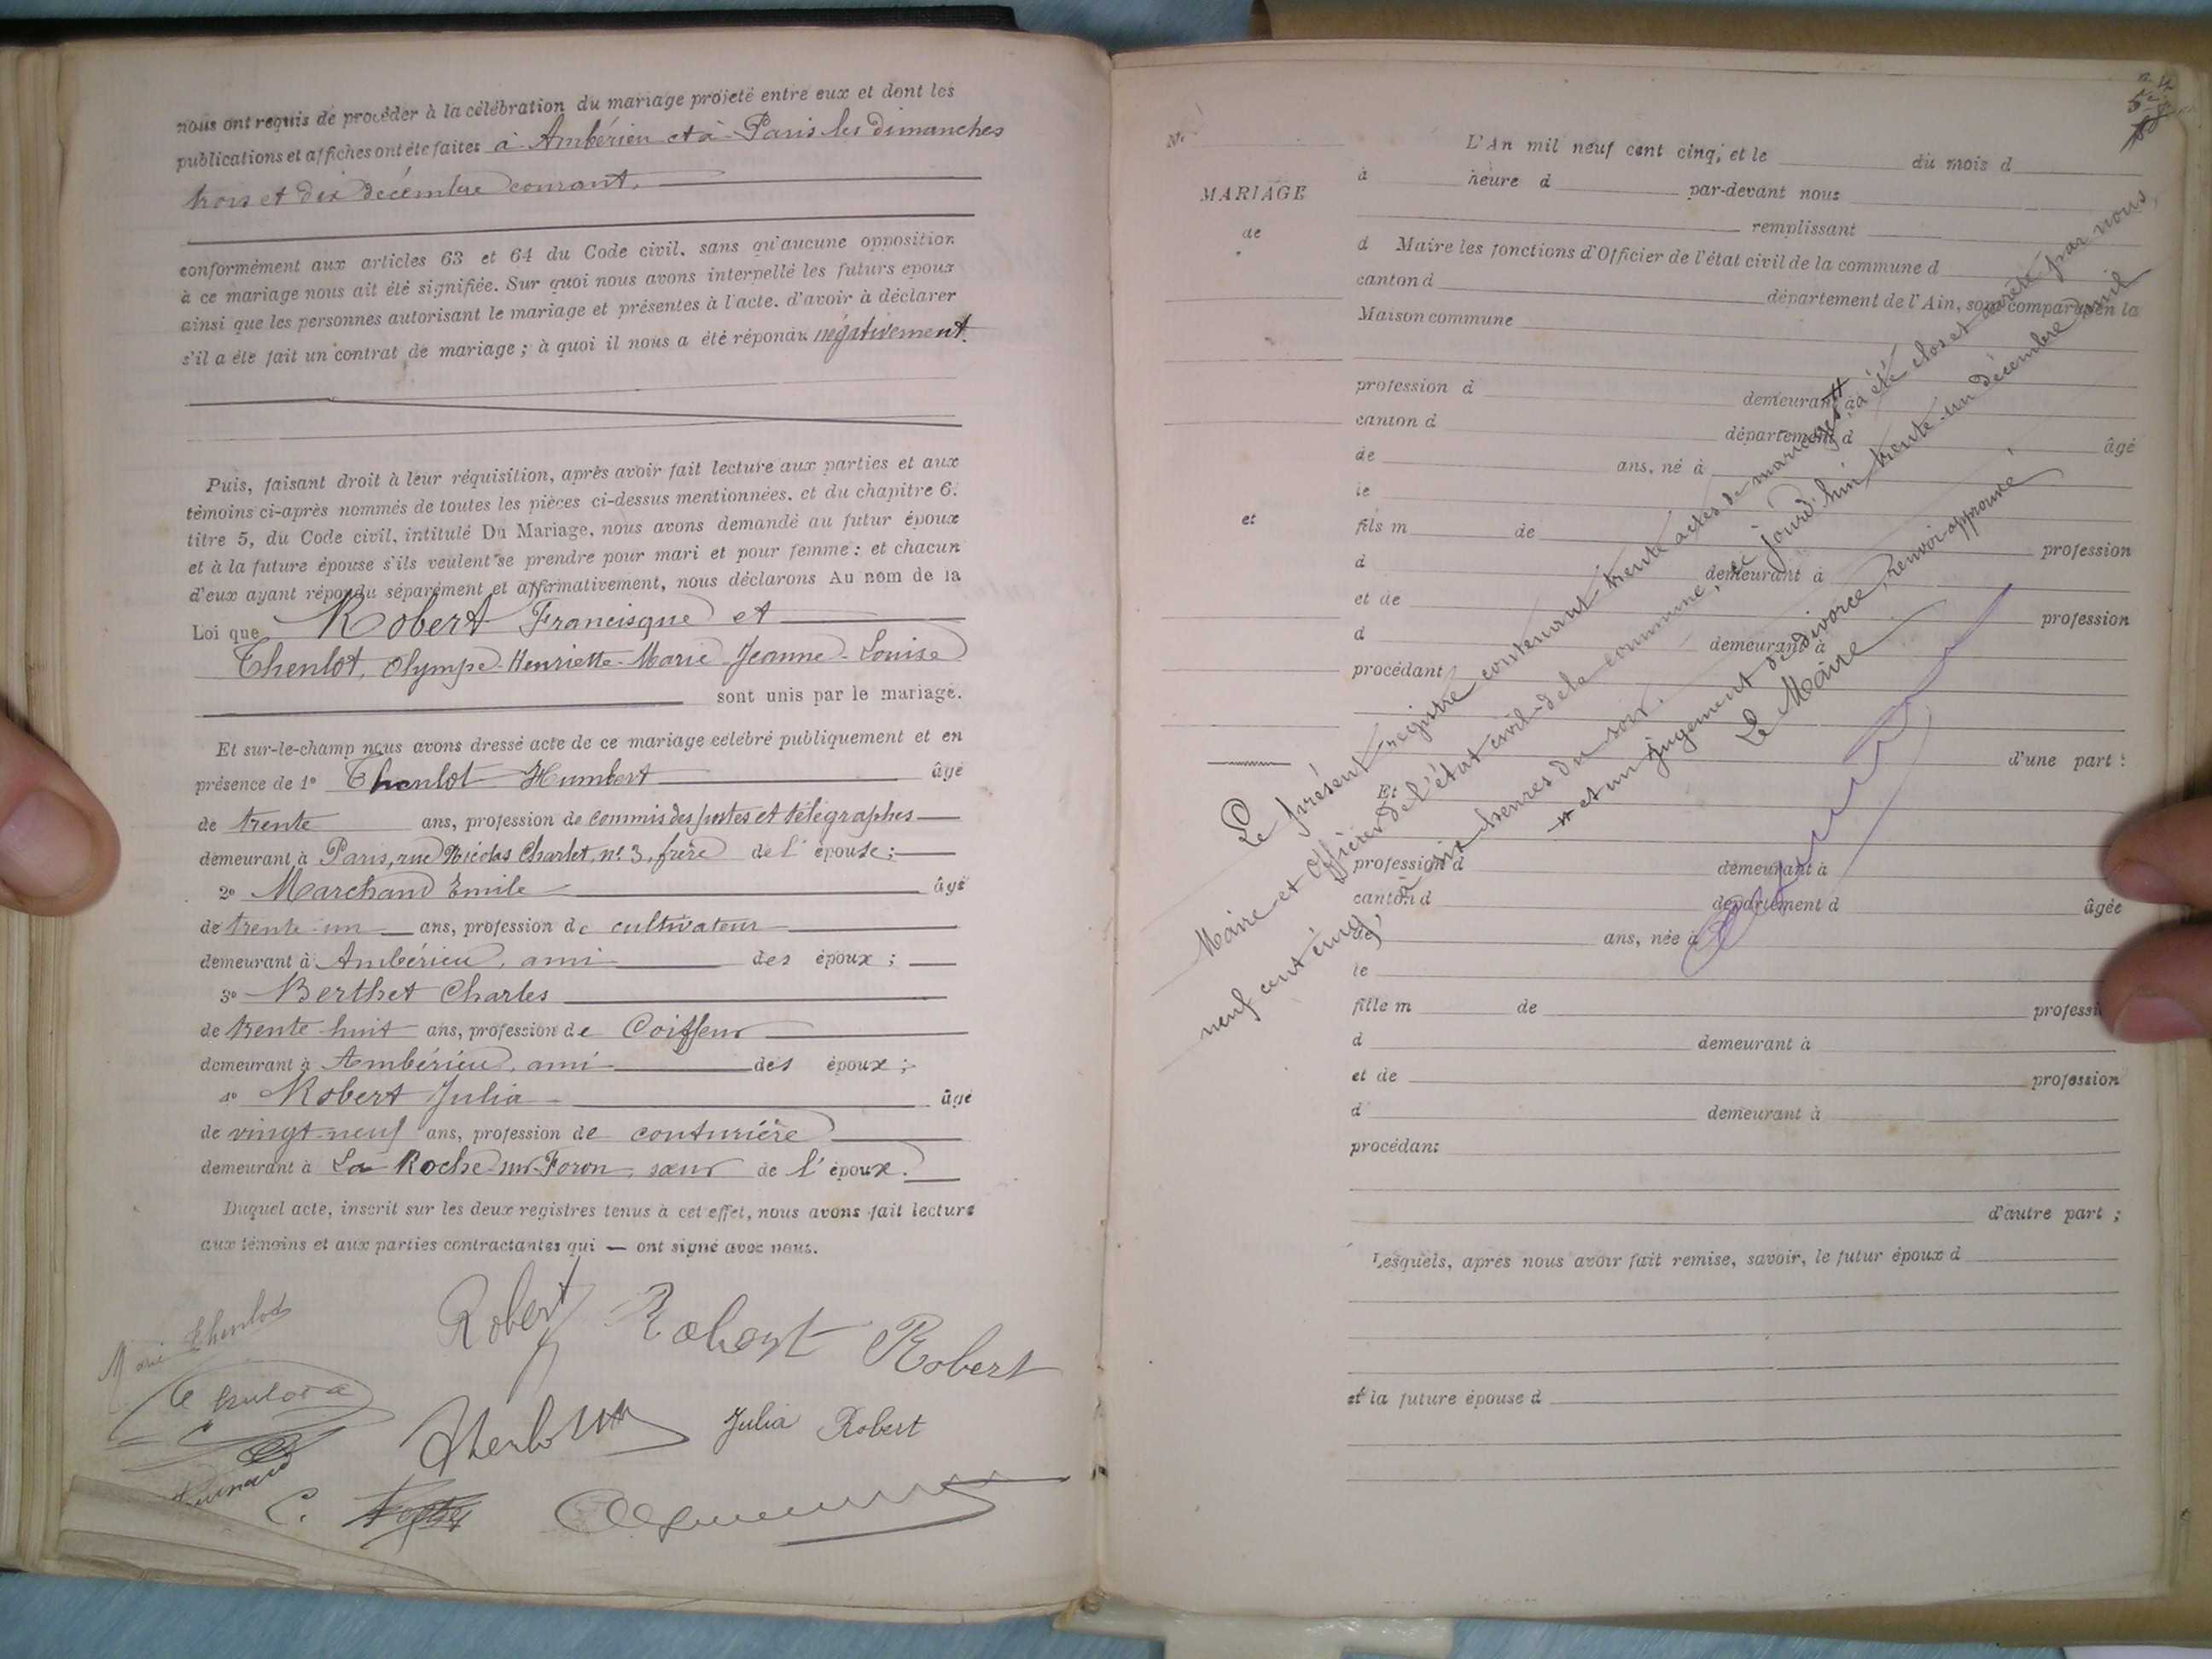 nous ont requis de procéder à la célébration du mariage projeté entre eux et dont les
publications et affiches ont été faites à Ambérieu et à Paris les dimanches
trois et dix décembre courant.
conformément aux articles 63 et 64 du Code civil, sans qu'aucune opposition
à ce mariage nous ait été signifiée. Sur quoi nous avons interpellé les futurs epoux
ainsi que les personnes autorisant le mariage et présentes à l'acte, d'avoir à déclarer
s'il a été fait un contrat de mariage ; à quoi il nous a été répondu négativement.
Puis, faisant droit à leur réquisition, après avoir fait lecture aux parties et aux
témoins ci-après nommés de toutes les pièces ci-dessus mentionnées, et du chapitre 6,
titre 5, du Code civil, intitulé Du Mariage, nous avons demandé au futur époux
et à la future épouse s'ils veulent se prendre pour mari et pour femme : et chacun
d'eux ayant répondu séparément et affirmativement, nous déclarons Au nom de la
Loi que Robert Francisque et
Thenlot, Olympe-Henriette-Marie-Jeanne-Louise
sont unis par le mariage.
Et sur-le-champ nous avons dressé acte de ce mariage célébré publiquement et en
présence de 1° Thenlot Humbert âgé
de trente ans, profession de commis des postes et télégraphes
demeurant à Paris, rue Nicolas Charlet, n° 3, frère de l'épouse ;
2° Marchand Emile âgé
de trente-un ans, profession de cultivateur
demeurant à Ambérieu, ami des époux ;
3° Berthet Charles
de trente-huit ans, profession de Coiffeur
demeurant à Ambérieu, ami des époux ;
4° Robert Julia âgé
de vingt-neuf ans, profession de couturière
demeurant à La Roche-sur-Foron, sœur de l'époux.
Duquel acte, inscrit sur les deux registres tenus à cet effet, nous avons fait lecture
aux témoins et aux parties contractantes qui — ont signé avec nous.
Marie Thenlot
Robert Robert Robert
Thenlot
Julia Robert
C.
MARIAGE
de
et
L'An mil neuf cent cinq, et le du mois d
à heure d par-devant nous
remplissant
d Maire les fonctions d'Officier de l'état civil de la commune d
canton d département de l'Ain, sont comparus en la
Maison commune
profession d demeurant à
canton d département d âgé
de ans, né à
le
fils m de profession
d demeurant à
et de profession
d demeurant à
procédant
d'une part :
Et
profession d demeurant à
canton d département d âgée
de ans, née à
le
fille m de professi
d demeurant à
et de profession
d demeurant à
procédant
d'autre part ;
Lesquels, après nous avoir fait remise, savoir, le futur époux d
et la future épouse d
Le présent registre contenant trente actes de mariages, a été clos et arrêté par nous,
Maire et Officier de l'état civil de la commune, ce jourd'hui trente-un décembre mil
neuf cent cinq, à six heures du soir.
et un jugement de divorce, renvoi approuvé
Le Maire